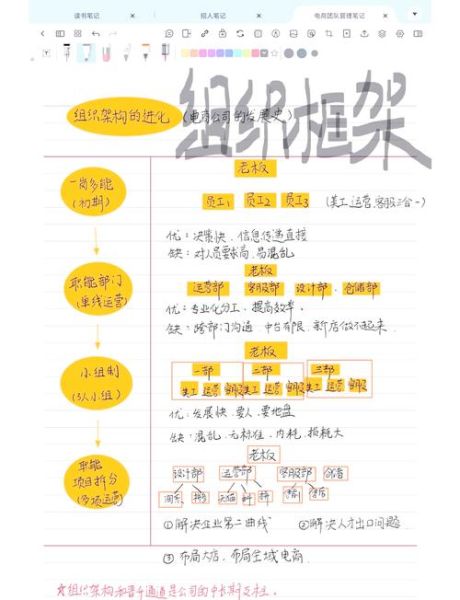 读书笔记
招人笔记
电商团队管理笔记
组织框架
组织架构的进化（电商公司的发展史）
一岗多能
（初期）
老板
员工1 员工2 员工3 （美工 运营 客服三合一）
优：决策快、信息传递直接
缺：对人员要求高、易混乱
职能部门
（单线运营）
老板
运营部 客服部 设计部、仓储部
优：专业化分工，提高效率。
缺：跨部门沟通，中台有限，新店做不起来
小组制
（3人小组）
老板
一部 二部 三部
美工 运营 客服 美工 运营 客服 美工 运营 客服
优：发展快，要人，要地盘
缺：混乱、无标准、内耗、损耗大
职能
项目拆分
（多项运营）
老板
设计部 运营部 客服部
淘系 拼多 天猫
①解决企业第二曲线 ②解决人才出口问题
③布局大店，布局全域电商
☆组织架构和晋升通道是公司的中长期支柱。